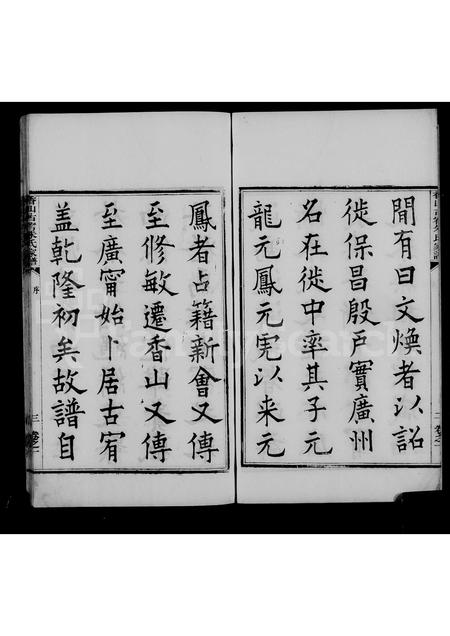 間有曰文煥者以詔
徙保昌殷戶實廣州
名在徙中率其子元
龍元鳳元宪以来元
鳳者占籍新會又傳
至修敏遷香山又傳
至廣甯始卜居古宥
蓋乾隆初矣故譜自
序
三
卷之一
二
卷之一